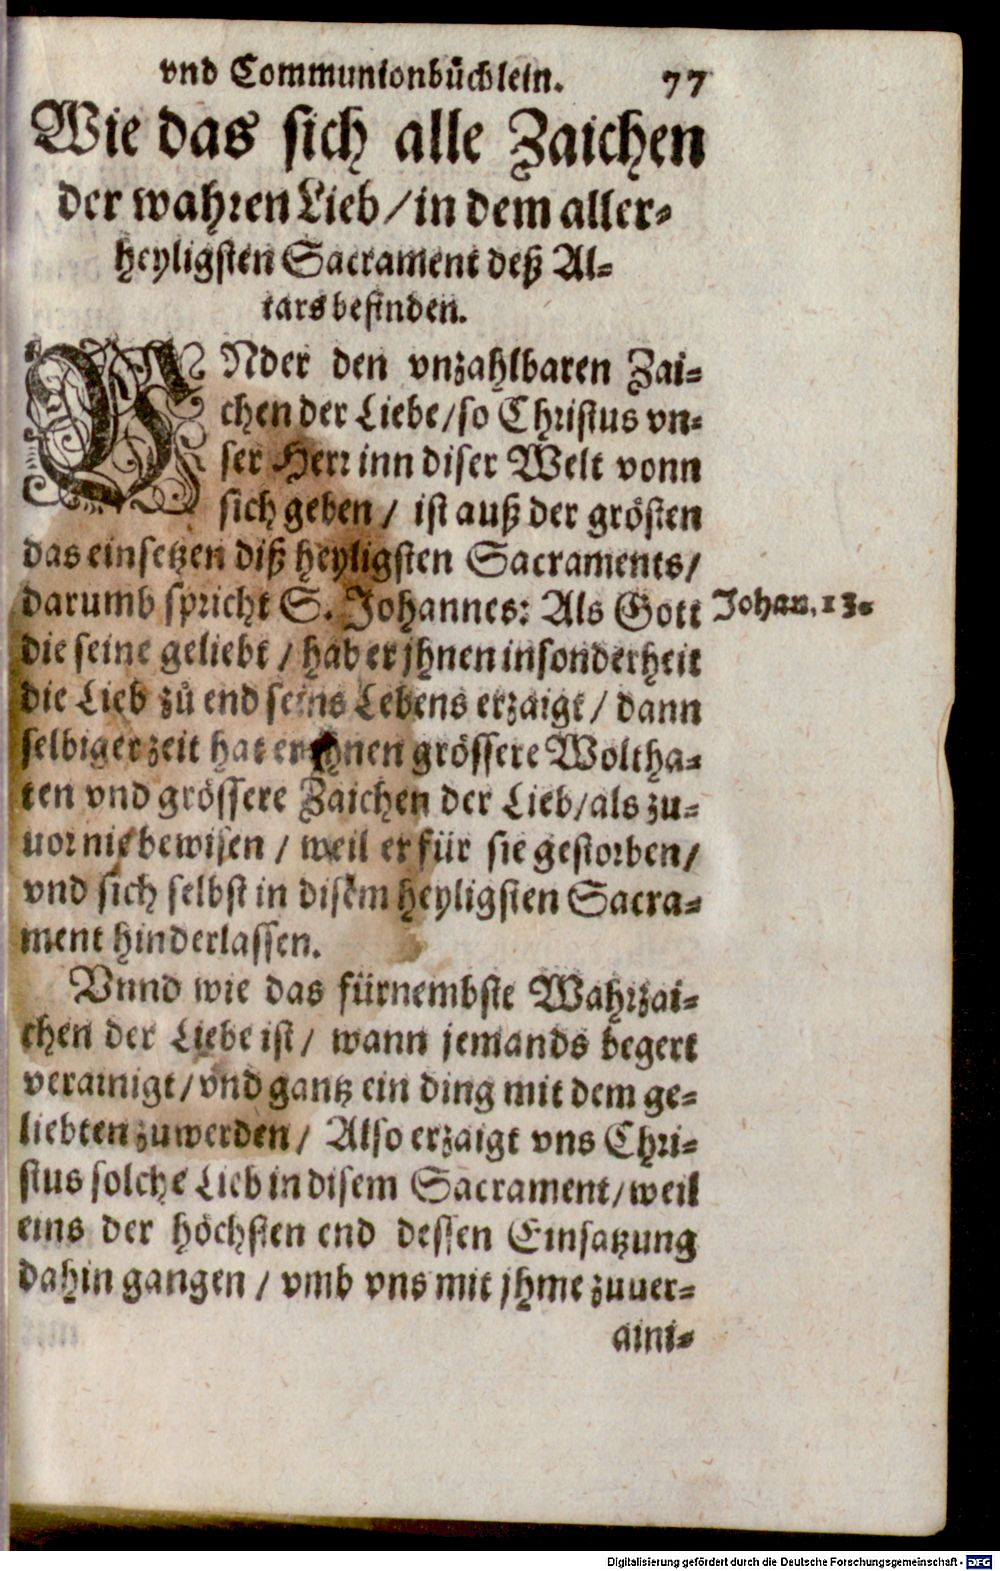 vnd Communionbüchlein. 77
Wie das sich alle Zaichen
der wahren Lieb / in dem aller-
heyligsten Sacrament deß Al-
tars befinden.
VNder den vnzahlbaren Zai-
chen der Liebe / so Christus vn-
ser Herr inn diser Welt vonn
sich geben / ist auß der grösten
das einsetzen diß heyligsten Sacraments /
darumb spricht S. Johannes: Als Gott
Johan. 13.
die seine geliebt / hab er jhnen insonderheit
die Lieb zů end seins Lebens erzaigt / dann
selbiger zeit hat er jhnen grössere Woltha-
ten vnd grössere Zaichen der Lieb / als zu-
uor nie bewisen / weil er für sie gestorben /
vnd sich selbst in disem heyligsten Sacra-
ment hinderlassen.
Vnnd wie das fürnembste Wahrzai-
chen der Liebe ist / wann jemands begert
verainigt / vnd gantz ein ding mit dem ge-
liebten zuwerden / Also erzaigt vns Chri-
stus solche Lieb in disem Sacrament / weil
eins der höchsten end dessen Einsatzung
dahin gangen / vmb vns mit jhme zuuer-
aini-
Digitalisierung gefördert durch die Deutsche Forschungsgemeinschaft - DFG